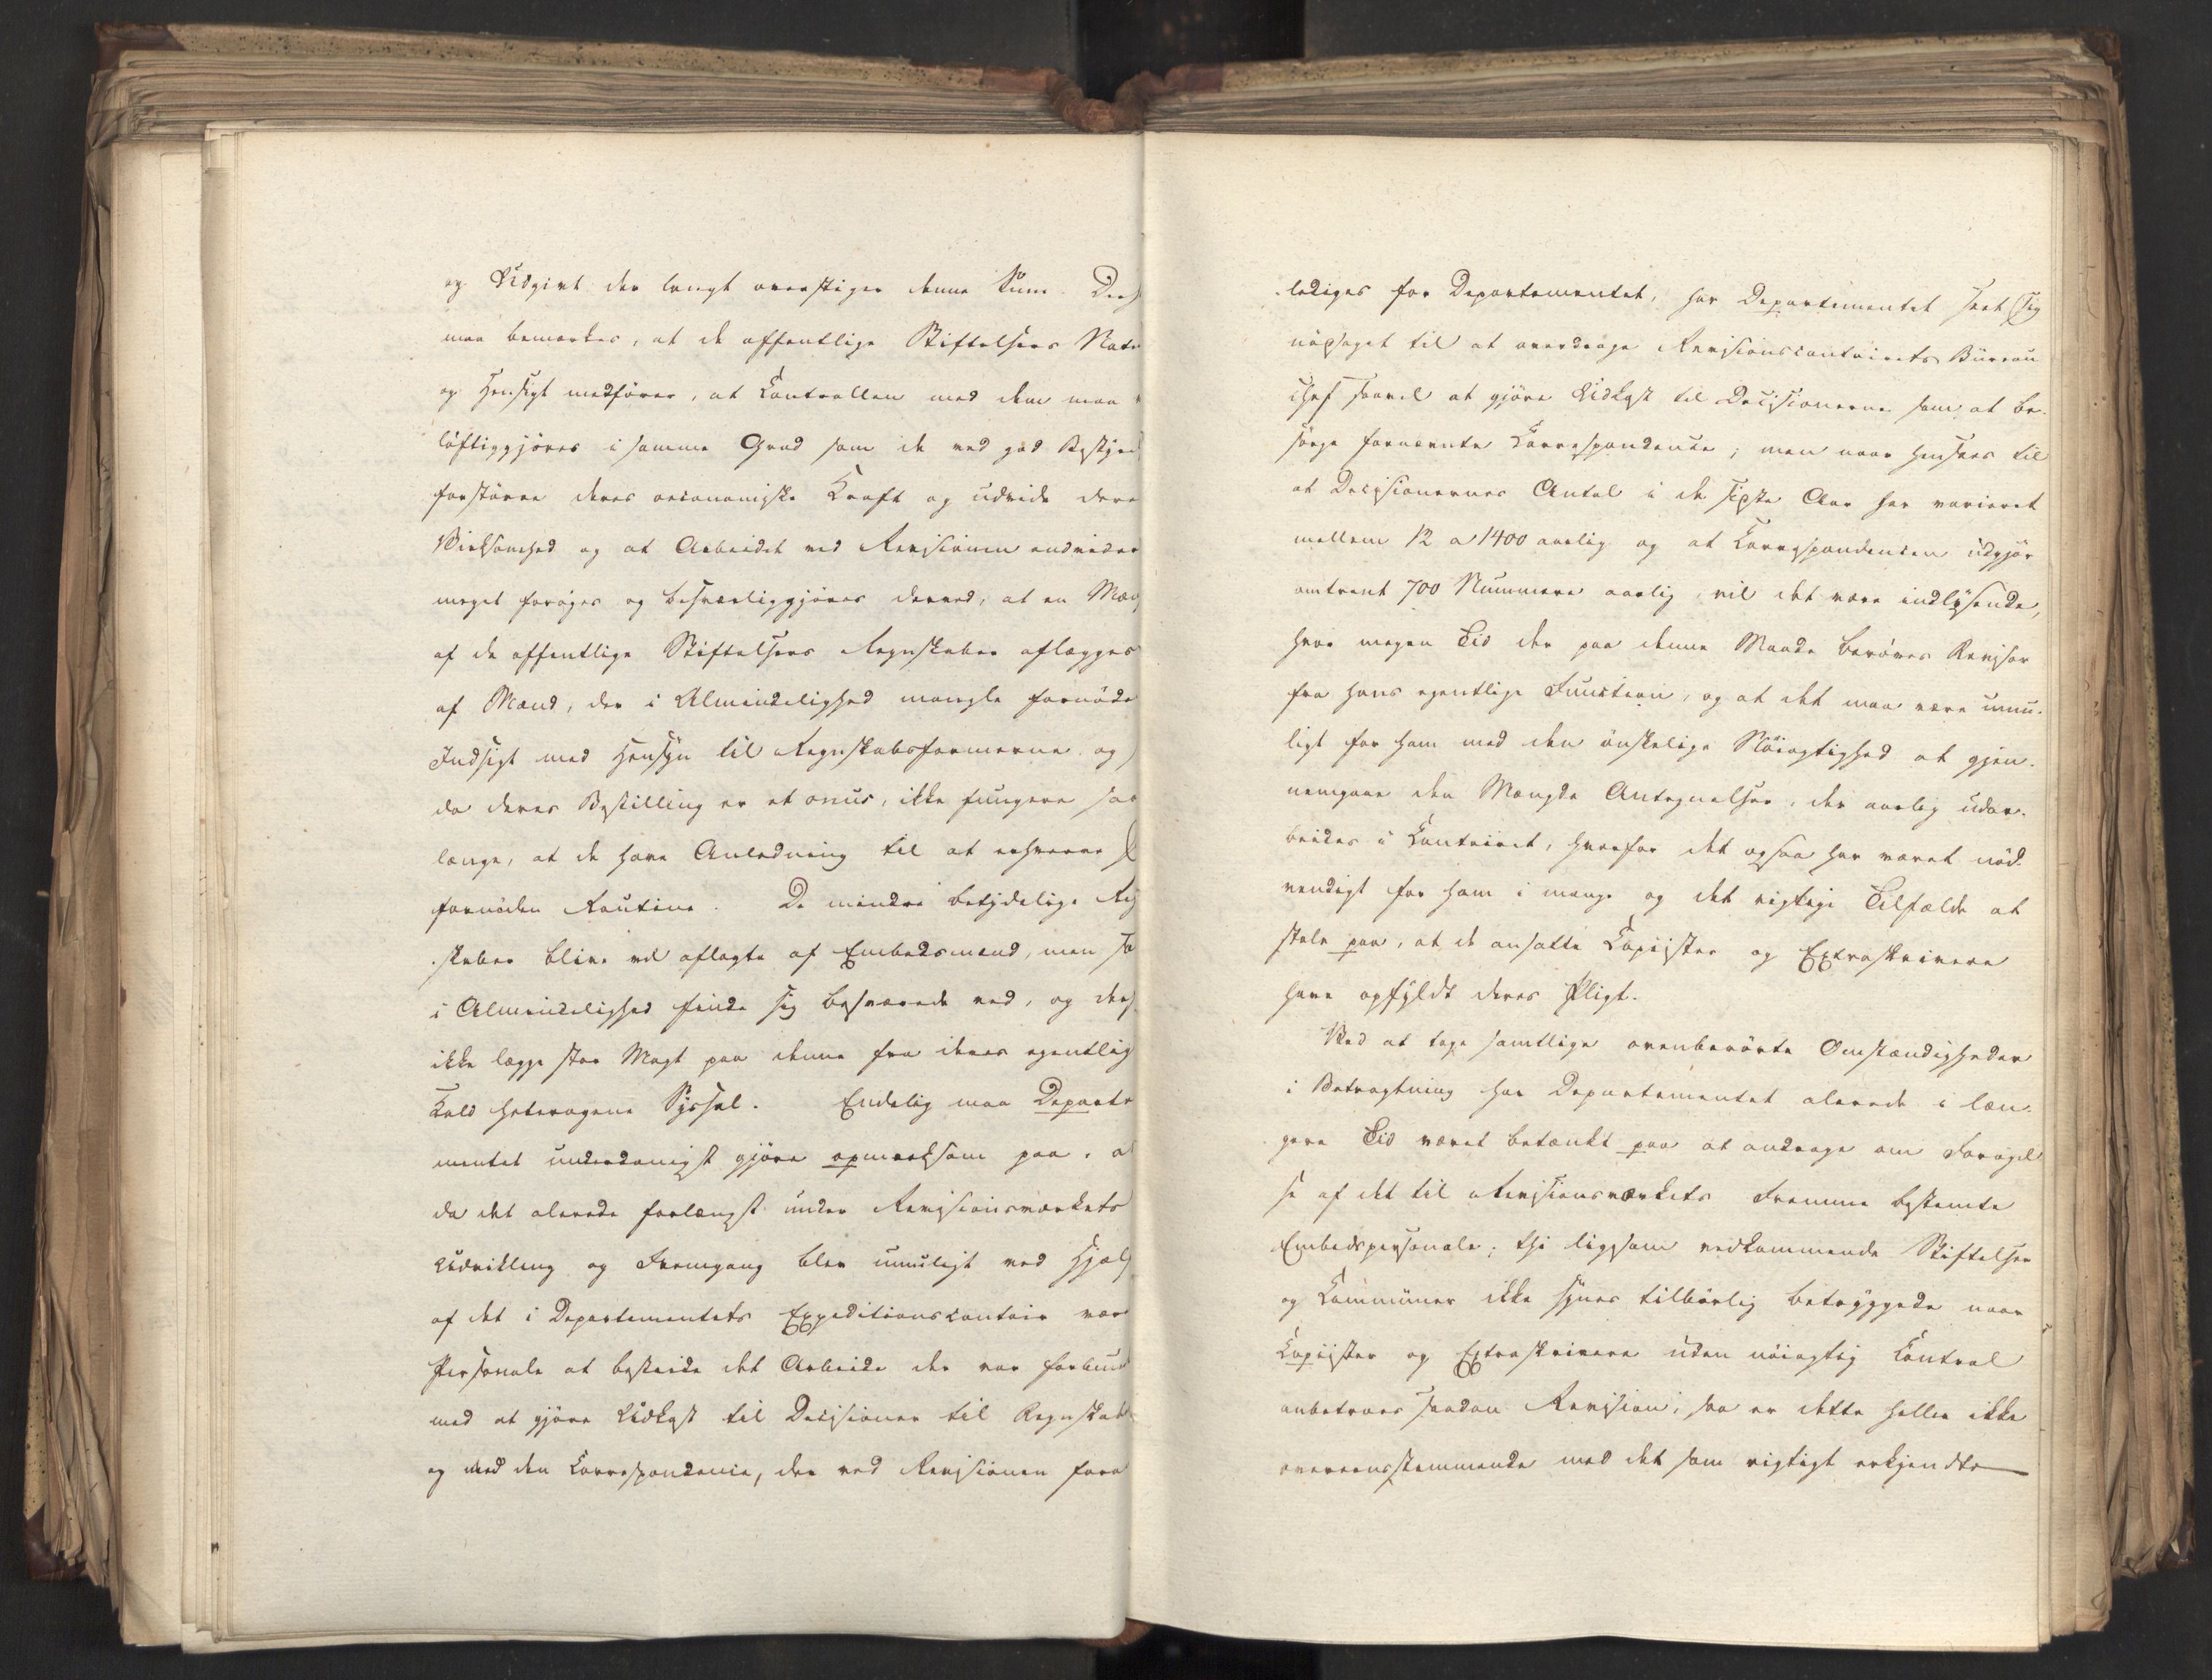 og Udgivt der langt overstiger denne Sum. Des
maa bemærkes, at de offentlige Stiftelsers Natu
og Hensigt medfører, at Controllen med dem maa
løftiggjøres i samme Grad som de ved god Bestyre
forstørre deres oeconomiske Kraft og udvide dere
Virksomhed og at Arbeidet ved Revisionen endvider
meget forøges og besværliggjøres derved, at en Mæng
af de offentlige Stiftelsers Regnskaber aflægges
af Mænd, der i Almindelighed mangle fornøden
Indsigt med Hensyn til Regnskabsformerne og
da deres Bestilling er et onus, ikke fungere saa
længe, at de have Anledning til at erhverve
fornøden Routine. De mindre betydelige Reg
skaber blive vel aflagte af Embedsmænd, men so
i Almindelighed finde sig besværede ved, og des
ikke lægge stor Magt paa denne fra deres egentlig
Kald heterogene Syssel. Endelig maa Departe
mentet underdanigst gjøre opmærksom paa, at
da det allerede forlængst under Revisionsværkets
Udvikling og Fremgang blev umuligt ved Hjælp
af det i Departementets Expeditionscontoir vær
Personale at bestride det Arbeide der var forbund
med at gjøre Udkast til Decisioner til Regnskab
og med den Correspondence, der ved Revisionen fora
lediges for Departementet, har Departementet seet sig
nødsaget til at overdrage Revisionscontoirets Bureau
chef saavel at gjøre Udkast til Decisionerne som at be-
sørge fornævnte Correspondence; men naar hensees til
at Decisionernes Antal i de sidste Aar har varieret
mellem 12 a 1400 aarlig og at Correspondencen udgjør
omtrent 700 Nummere aarlig, vil det være indlysende,
hvor megen Tid der paa denne Maade berøves Revisor
fra hans egentlige Function, og at det maa være umu-
ligt for ham med den ønskelige Nøiagtighed at gjen-
nemgaae den Mængde Antegnelser, der aarlig udar-
beides i Contoiret, hvorfor det ogsaa har været nød-
vendigt for ham i mange og det vigtige Tilfælde at
stole paa, at de ansatte Copiister og Extraskrivere
have opfyldt deres Pligt.
Ved at tage samtlige ovenberørte Omstændigheder
i Betragtning har Departementet allerede i læn-
gere Tid været betænkt paa at andrage om Forøgel
se af det til Revisionsværkets Fremme bestemte
Embedspersonale; thi ligesom vedkommende Stiftelser
og Communer ikke synes tilbørlig betryggede naar
Copiister og Extraskrivere uden nøiagtig Control
anbetroes saadan Revision, saa er dette heller ikke
overeensstemmende med det som rigtigt erkjendte